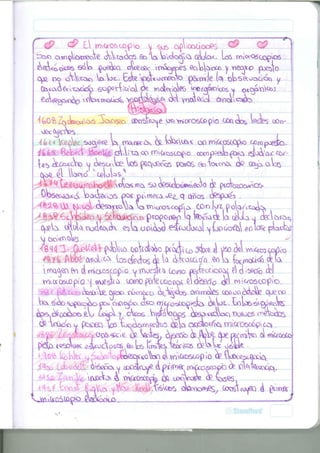 El microscopio y sus aplicaciones
Son ampliamente utilizados en la biología celular. Los microscopios
electrónicos sólo pueden ofrecer imágenes en blanco y negro puesto
que no utilizan la luz. Este instrumento permite la observación y
caracterización superficial de materiales inorgánicos y orgánicos
entregando información morfológica del material analizado.
Historia
1608 Zacharias Jansen construye un microscopio con dos lentes con-
vergentes.
1611 Kepler sugiere la manera de fabricar un microscopio compuesto.
1665 Robert Hooke utiliza un microscopio compuesto para estudiar cor-
tes de corcho y describe los pequeños poros en forma de caja a los
que él llamó "células"
1674 Leeuwenhoek informa su descubrimiento de protozoarios.
Observará bacterias por primera vez 9 años después.
1828 W. Nicol desarrolla la microscopía con luz polarizada.
1838 Schleiden y Schwann proponen la teoría de la célula y declaran
que la célula nucleada es la unidad estructural y funcional en las plantas
y animales.
1849 J. Quekett publica un tratado práctico sobre el uso del microscopio
1876 Abbé analiza los efectos de la difracción en la formación de la
imagen en el microscopio y muestra cómo perfeccionar el diseño del
microscopio y muestra cómo perfeccionar el diseño del microscopio.
de gran número de tejidos animales con un detalle que no
ha sido superado por ningún otro microscopista de luz. En las siguientes
dos décadas él, y otros histólogos desarrollan nuevos métodos
de tinción y ponen los fundamentos de la anatomía microscópica.
una serie de lentes, diseño de Abbé que permiten al microsco-
pista resolver estructuras en los límites teóricos de la luz visible.
desarrollan el microscopio de fluorescencia.
diseña y construye el primer microscopio de interferencia.
inventa el microscopio de contraste de fases.
físicos alemanes, construyen el primer
microscopio electrónico.